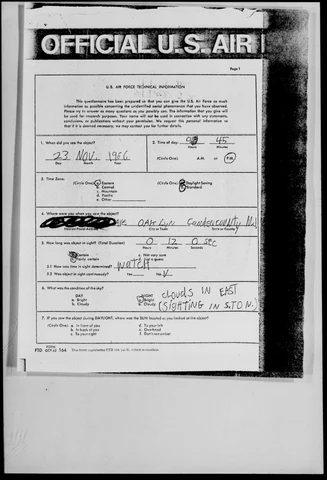 OFFICIAL U.S. AIR
Page 1
U.S. AIR FORCE TECHNICAL INFORMATION
This questionnaire has been prepared so that you can give the U.S. Air Force as much
information as possible concerning the unidentified aerial phenomenon that you have observed.
Please try to answer as many questions as you possibly can. The information that you give will
be used for research purposes. Your name will not be used in connection with any statements,
conclusions, or publications without your permission. We request this personal information so
that if it is deemed necessary, we may contact you for further details.
1. When did you see the object?
23 NOV. 1966
Day Month Year
2. Time of day: 45
Hours Minutes
(Circle One): A.M. or P.M.
3. Time Zone:
(Circle One): a. Eastern
b. Central
c. Mountain
d. Pacific
e. Other
(Circle One): a. Daylight Saving
b. Standard
4. Where were you when you saw the object?
Ave Oaklyn Camden County NJ
Nearest Postal Address City or Town State or County
5. How long was object in sight? (Total Duration) 0 12 0 sec
Hours Minutes Seconds
a. Certain c. Not very sure
b. Fairly certain d. Just a guess
5.1 How was time in sight determined? watch
5.2 Was object in sight continuously? Yes No V
6. What was the condition of the sky?
DAY NIGHT
a. Bright a. Bright
b. Cloudy b. Cloudy
clouds IN EAST
(SIGHTING IN S.TO N.)
7. IF you saw the object during DAYLIGHT, where was the SUN located as you looked at the object?
(Circle One): a. In front of you d. To your left
b. In back of you e. Overhead
c. To your right f. Don't remember
FTD FORM OCT 62 164 This form supersedes FTD 164, Jul 61, which is obsolete.